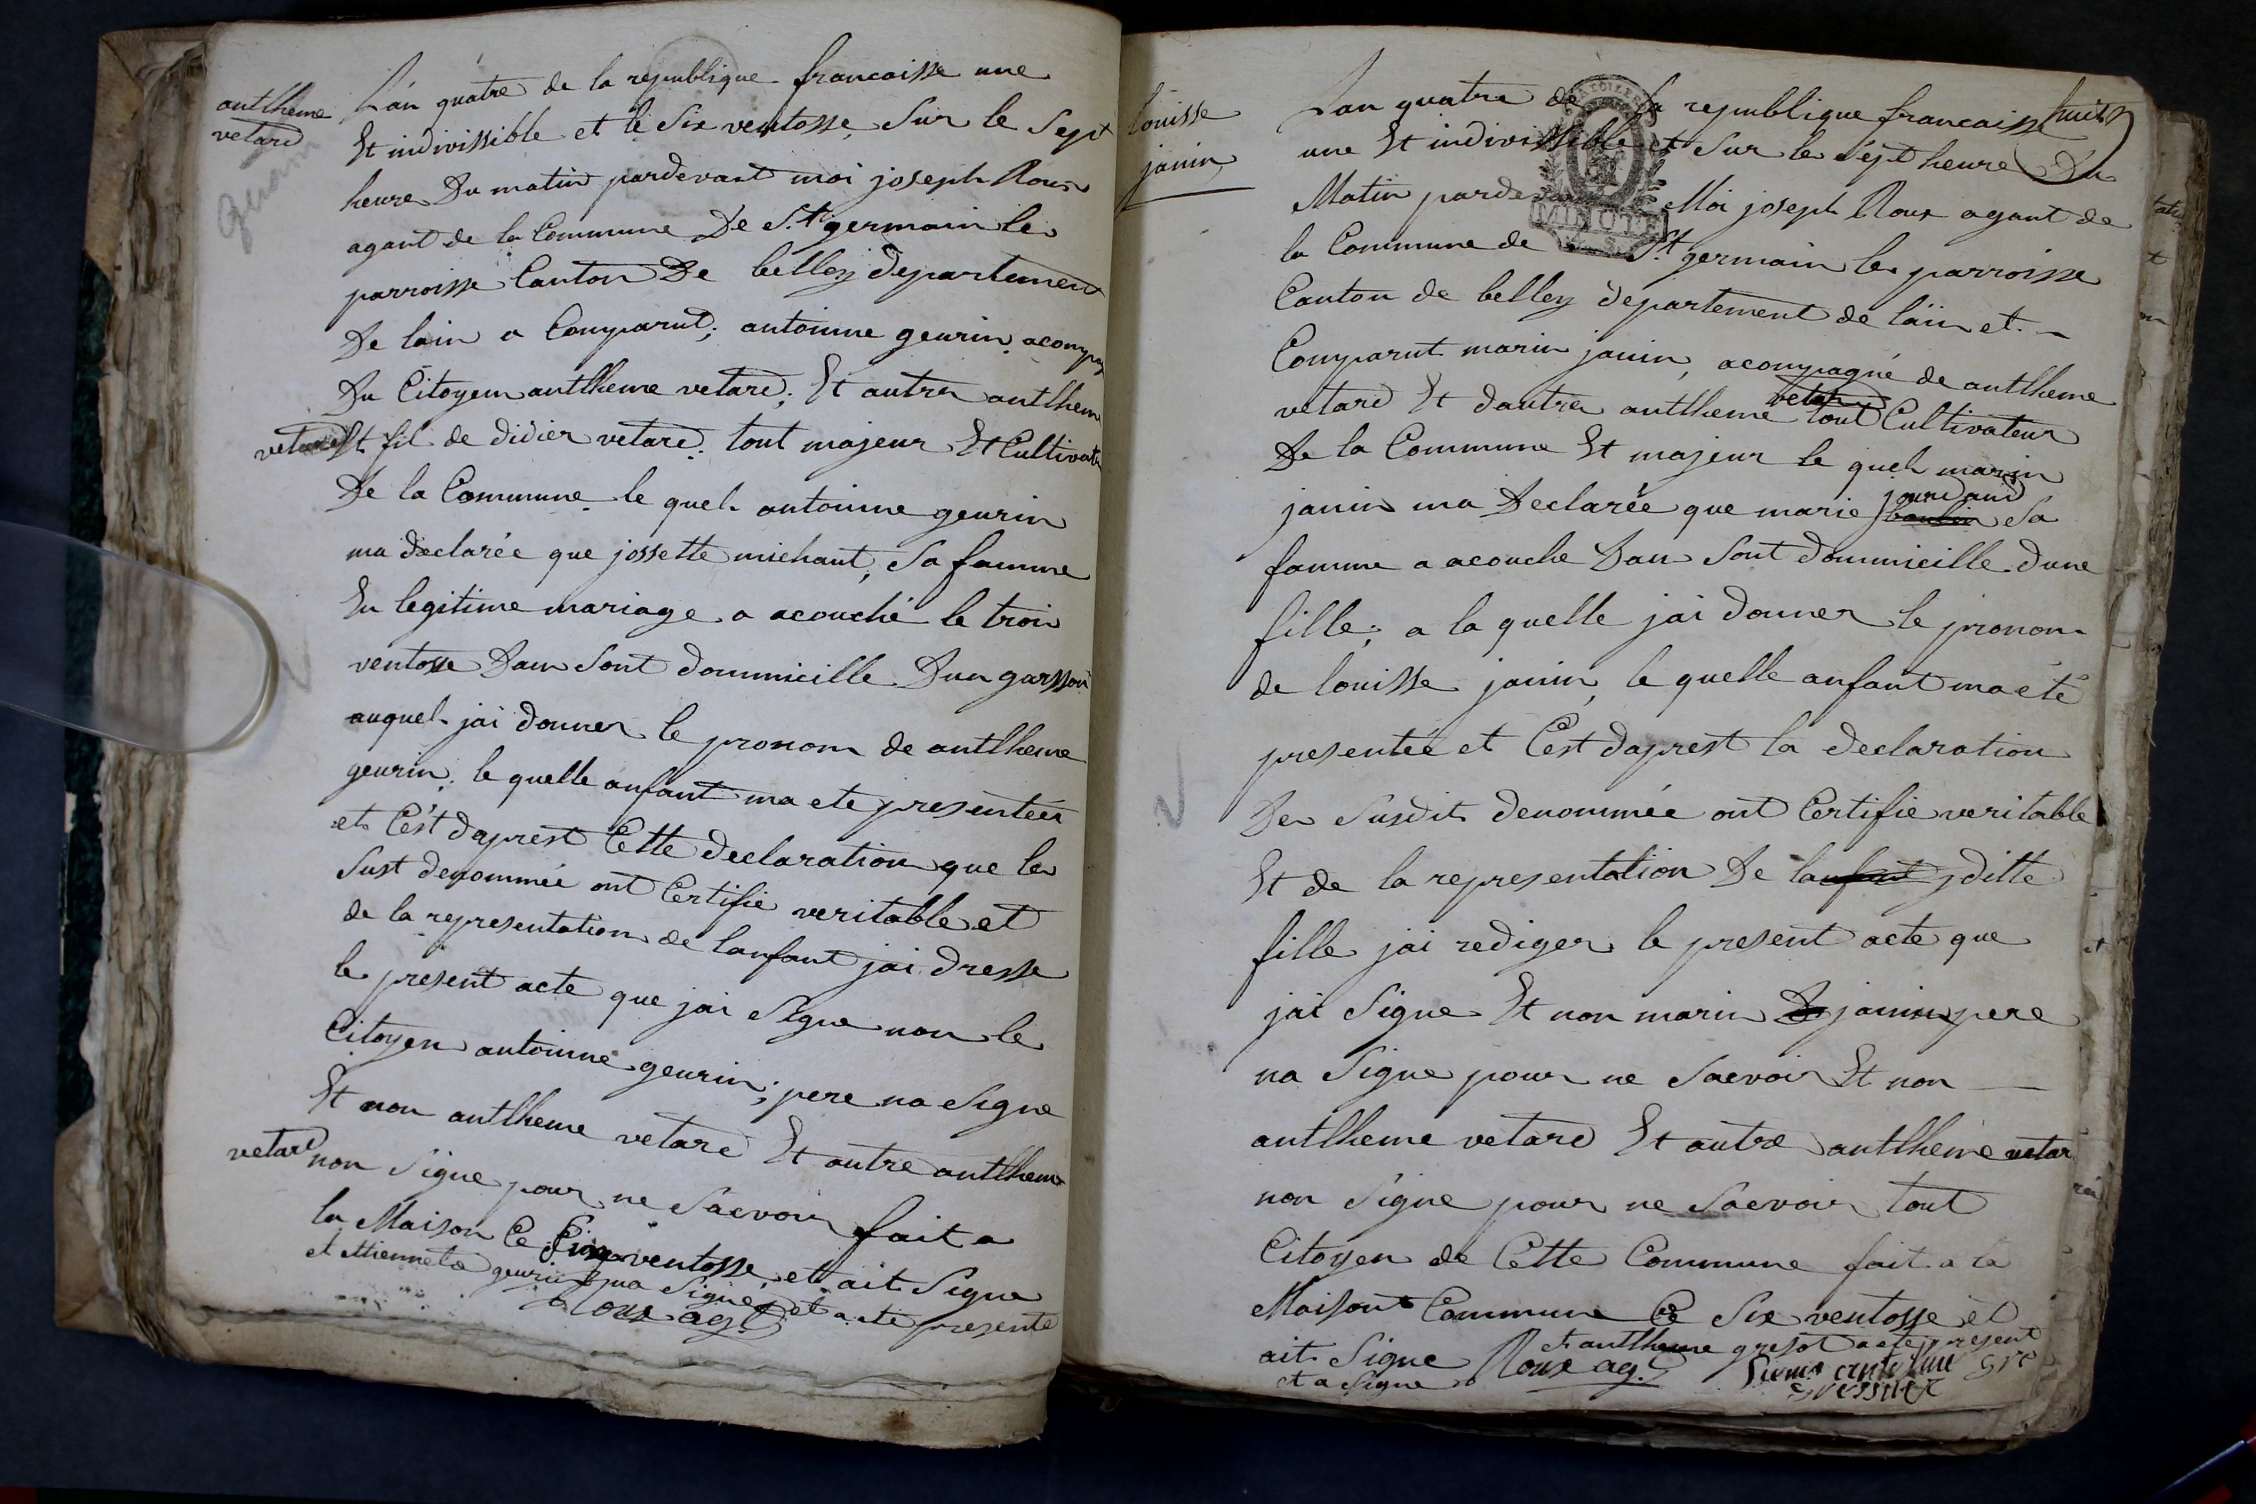 antlheme
vetard
guerin
L'an quatre de la republique francaisse une
Et indivissible et le Six ventosse Sur le Sept
heure Du matin pardevant moi joseph Roux
agant de la Commune De S.t germain les
parroisse Canton De belley departement
De lain a Comparut; antoinne geurin acompag
Du Citoyen antlheme vetard; Et autre antlheme
vetard Et fil de didier vetard. tout majeur Et Cultivate
De la Commune le quel antoinne geurin
ma declarée que jossette michaut, Sa famme
En legitime mariage a acouché le trois
ventosse Dan Sont dommicille Dun garsson
auquel jai donner le pronom de antlheme
geurin, le quelle anfant ma ete presenteér
et C'est daprest Cette declaration que les
Sust denommée ont Certifie veritable et
de la representation de lanfant jai dresse
le present acte que jai Signe non le
Citoyen antoinne geurin; pere na Signe
Et non antlheme vetard Et autre antlheme
vetard non Signe pour ne Saevoir fait a
la Maison Ce Six ventosse et ait Signe
et ettiennete geurin qua Signe, et acte presente
Roux ag.t
louisse
janin
huit
Lan quatre de la republique francaisse
une Et indivissible et Sur les Sept heure Du
Matin pardevant Moi joseph Roux agant de
MINUTE
la Commune de S.t germain les parroisse
Canton de belley departement de lain et
Comparut marin janin, acompagné de antlheme
vetard
vetard Et dautre antlheme tout Cultivateur
De la Commune Et majeur le quel marin
jourdand
janin ma Declarée que marie Sa
famme a acouche Dan Sont dommicille dune
fille; a la quelle jai donner le pronom
de louisse janin, le quelle anfant ma eté
presentée et C'est daprest la declaration
Des Susdit denommée ont Certifie veritable
Et de la representation De lanfant ditte
fille jai rediger le present acte que
jai Signe Et non marin janin pere
na Signe pour ne Saevoir Et non
antlheme vetard Et autre antlheme vetar
non Signe pour ne Saevoir tout
Citoyen de Cette Commune fait a la
Maisont Commune Ce Six ventosse et
et antlheme gresot acte present
ait Signe Roux ag.t
et a Signe